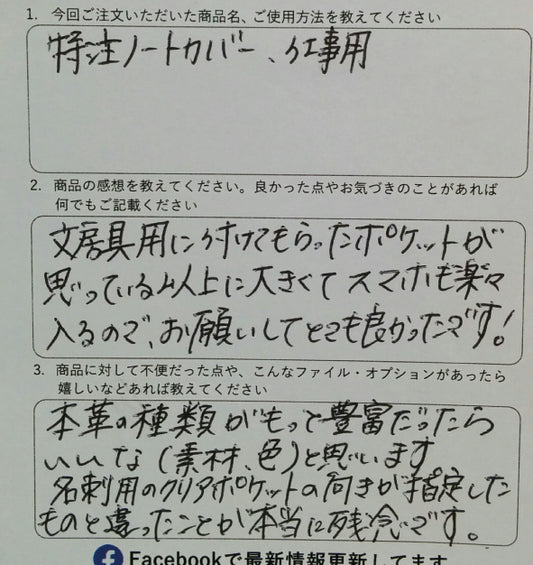 1. 今回ご注文いただいた商品名、ご使用方法を教えてください
特注ノートカバー、仕事用
2. 商品の感想を教えてください。良かった点やお気づきのことがあれば
何でもご記載ください
文房具用に付けてもらったポケットが
思っている以上に大きくてスマホも楽々
入るので、お願いしてとても良かったです!
3. 商品に対して不便だった点や、こんなファイル・オプションがあったら
嬉しいなどあれば教えてください
本革の種類がもっと豊富だったら
いいな(素材、色)と思います
名刺用のクリアポケットの向きが指定した
ものと違ったことが本当に残念です。
Facebookで最新情報更新してます